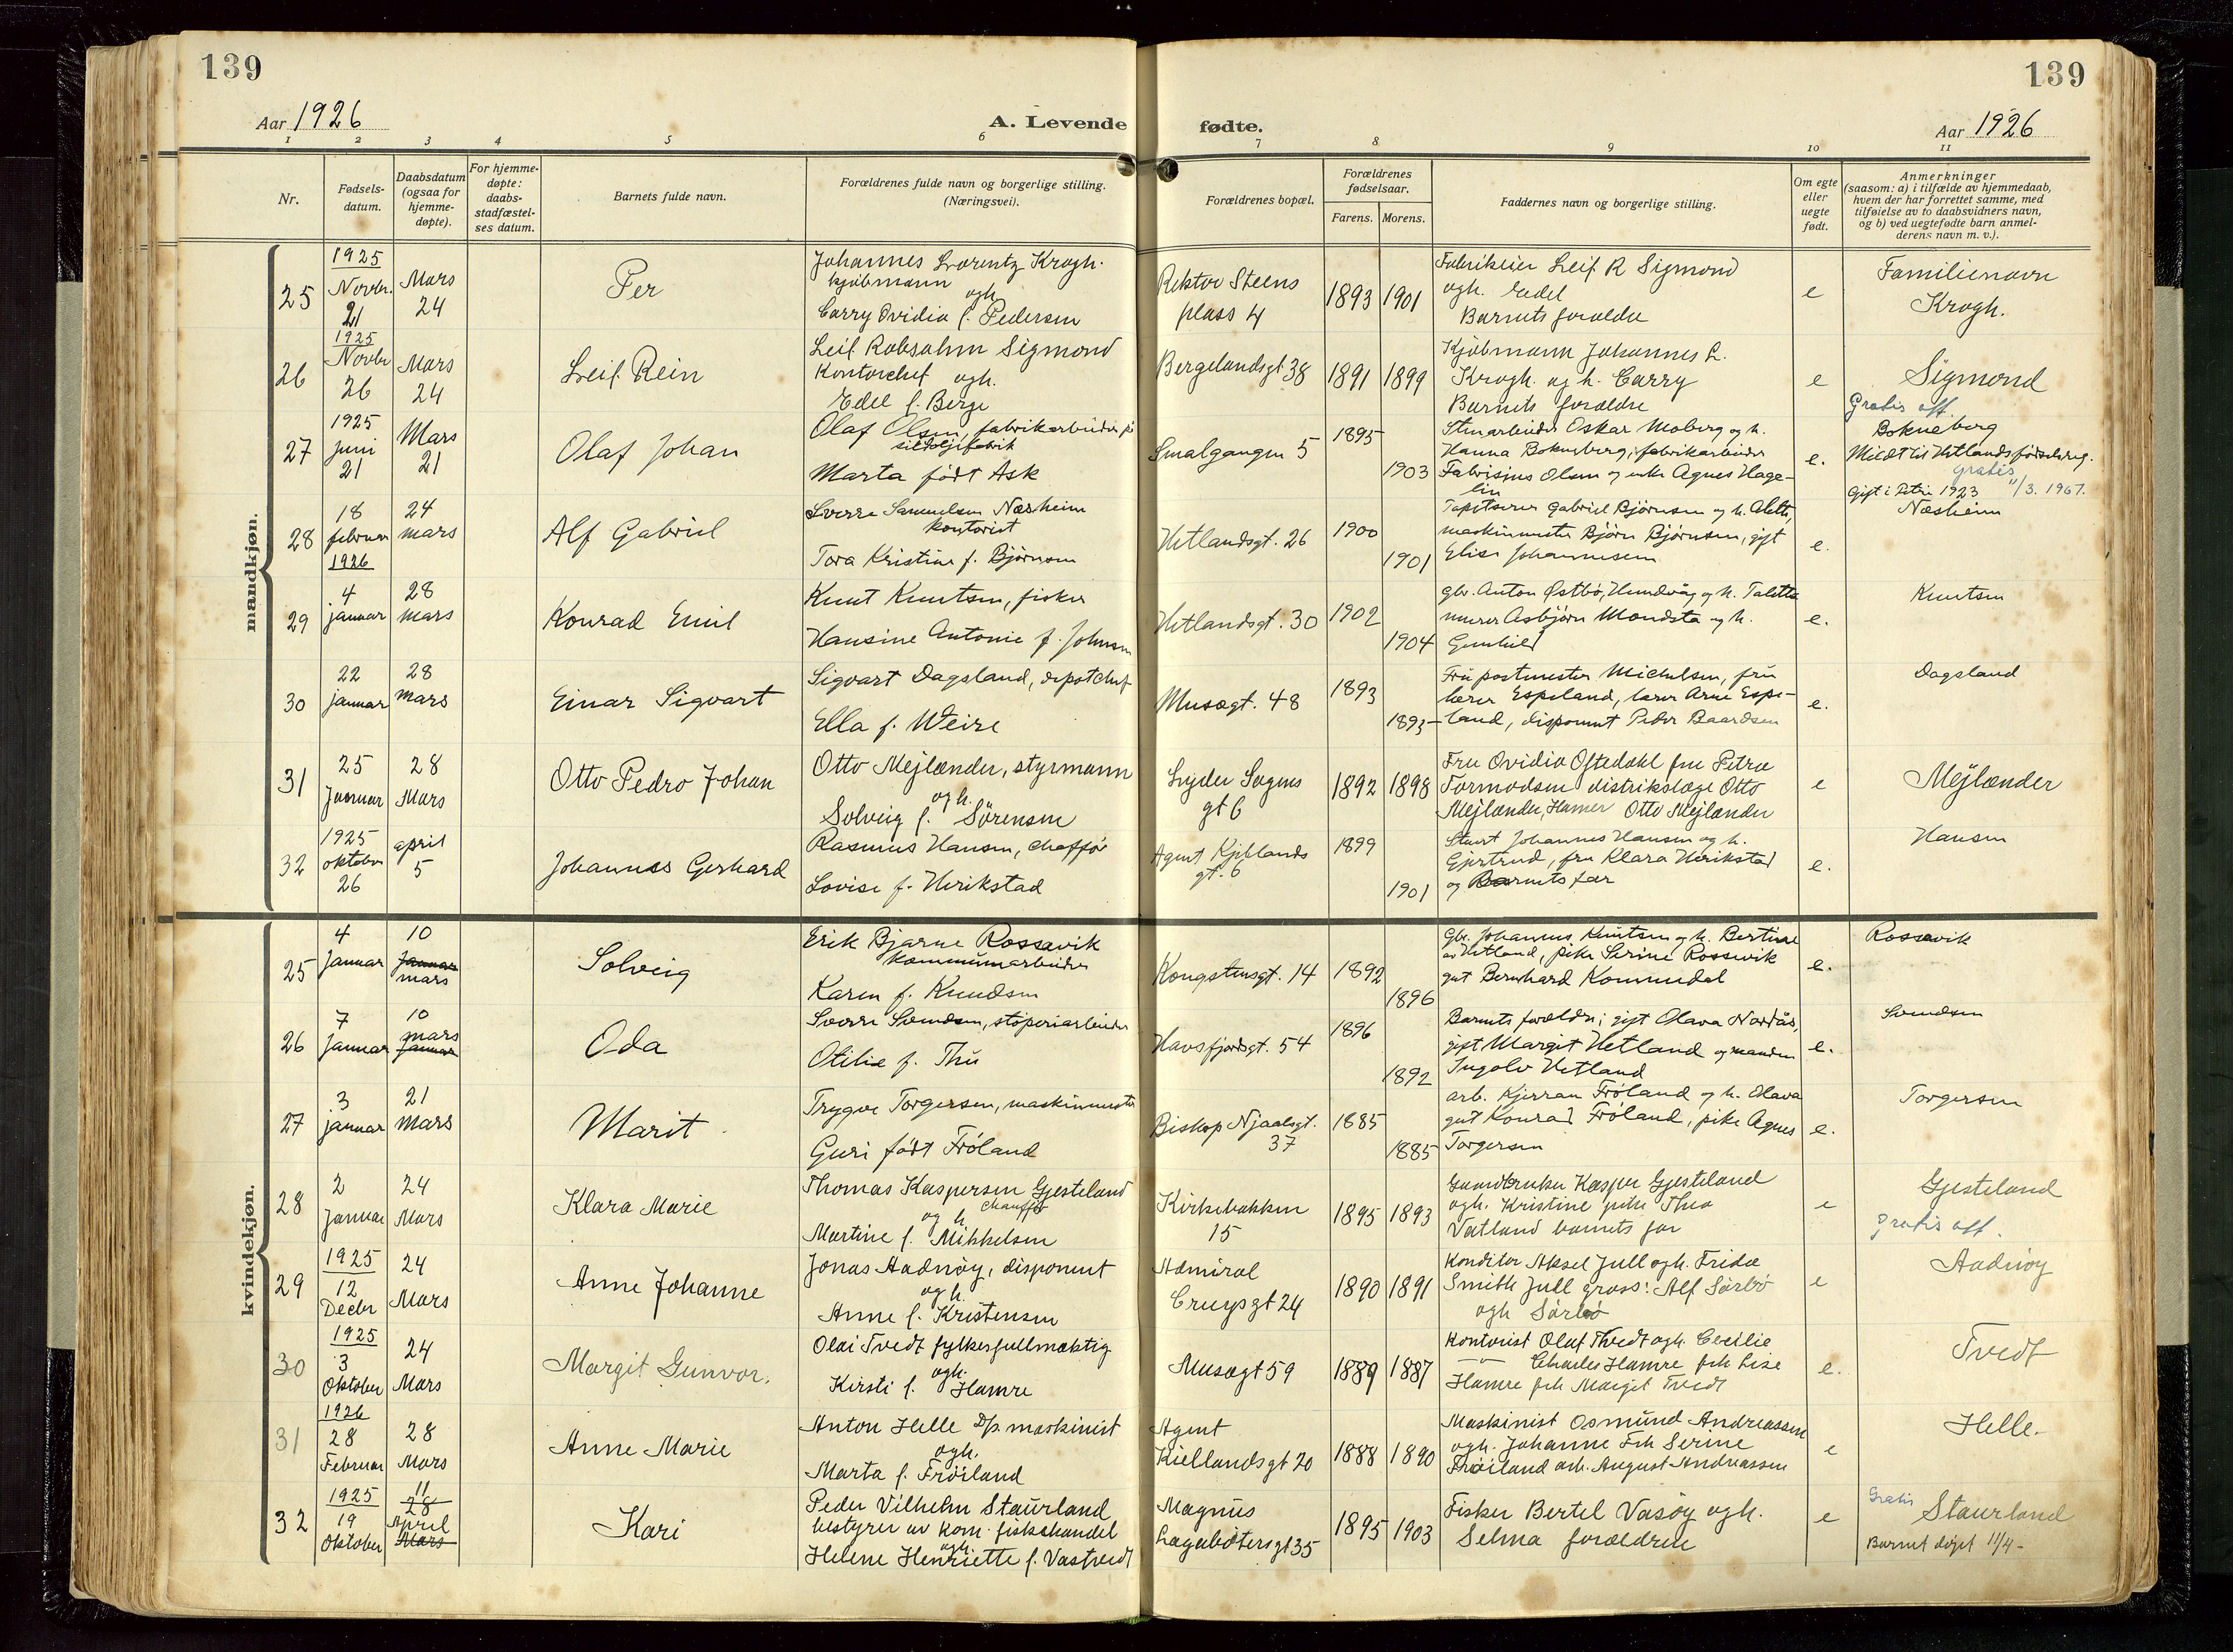 139
139
Aar 1926
A. Levende
fødte.
Aar 1926
1 2 3 4 5 6 7 8 9 10 11
Nr.
Fødsels-
datum.
Daabsdatum
(ogsaa for
hjemme-
døpte).
For hjemme-
døpte:
daabs-
stadfæstel-
ses datum.
Barnets fulde navn.
Forældrenes fulde navn og borgerlige stilling.
(Næringsvei).
Forældrenes bopæl.
Forældrenes
fødselsaar.
Farens. Morens.
Faddernes navn og borgerlige stilling.
Om egte
eller
uegte
født.
Anmerkninger
(saasom: a) i tilfælde av hjemmedaab,
hvem der har forrettet samme, med
tilføielse av to daabsvidners navn,
og b) ved uegtefødte barn anmel-
derens navn m. v.).
mandkjøn.
25
1925
Novbr.
21
Mars
24
Per
Johannes Lorentz Krogh.
kjøbmann
ogh
Carry Ovidia f. Pedersen
Rektor Steens
plass 4
1893 1901
Fabrikeier Leif R Sigmond
ogh. Edel
Barnets forældre
e
Familienavn
Krogh.
26
1925
Novbr
26
Mars
24
Leif Rein
Leif Robsahm Sigmond
Kontorchef ogh.
Edel f. Berge
Bergelandsgt 38
1891 1899
Kjøbmann Johannes L.
Krogh og h. Carry
Barnets forældre
e
Sigmond
Gratis att.
27
1925
Juni
21
Mars
21
Olaf Johan
Olaf Olsen, fabrikarbeider på
sildoljefabrik
Marta født Ask
Smalgangen 5
1895
1903
Stenarbeider Oskar Moberg og h.
Hanna Bokneberg, fabrikarbeider
Fabrisius Olsen og enke Agnes Hage-
lin
e.
Bokneberg
Meldt til Hetlands fødselsreg.
Gratis
Gift i Petri 1923 11/3. 1967.
28
18
februar
1926
24
mars
Alf Gabriel
Sverre Samuelsen Næsheim
kontorist
Tora Kristine f. Bjørnsen
Hetlandsgt. 26
1900
1901
Tapetserer Gabriel Bjørnsen og h. Alette,
maskinmester Bjørn Bjørnsen, gift
Elise Johannesen
e.
Næsheim
29
4
januar
28
mars
Konrad Emil
Knut Knutsen, fisker
Hansine Antonie f. Johnsen
Hetlandsgt. 30
1902
1904
gbr. Anton Østbø, Hundvåg og h. Talette
murer Asbjørn Mondsta og h.
Gunhild
e.
Knutsen
30
22
januar
28
mars
Einar Sigvart
Sigvart Dagsland, depotchef
Ella f. Weire
Musegt. 48
1893
1893
Fru postmester Michelsen, fru
lærer Espeland, lærer Arne Espe-
land, disponent Peder Baardsen
e.
Dagsland
31
25
Januar
28
Mars
Otto Pedro Johan
Otto Mejlænder, styrmann
ogh.
Solveig f. Sörensen
Lyder Sagens
gt 6
1892 1898
Fru Ovidia Oftedahl fru Petra
Tormodsen distrikslæge Otto
Mejlænder, Hamer Otto Mejlænder
e
Mejlænder
32
1925
oktober
26
april
5
Johannes Gerhard
Rasmus Hansen, chaffør
Lovise f. Henrikstad
Agent Kjellands
gt. 6
1899
1901
Stuert Johannes Hansen og h.
Gjertrud, fru Klara Henrikstad
og Barnets far
e.
Hansen
kvindekjøn.
25
4
Januar
10
Januar
mars
Solveig
Erik Bjarne Rossavik
kommunearbeider
Karen f. Knudsen
Kongstensgt. 14
1892
1896
Gbr. Johannes Knutsen og h. Bertine
av Hetland, pike Serine Rossevik
gut Bernhard Kommedal
e.
Rossavik
26
7
Januar
10
mars
Januar
Oda
Sverre Svendsen, støperiarbeider
Otilie f. Thu
Havsfjordsgt. 54
1896
1892
Barnets forældre; gift Olava Nordås,
gift Margit Hetland og manden
Ingolv Hetland
e.
Svendsen
27
3
januar
21
mars
Marit
Trygve Torgersen, maskinmester
Guri født Frøland
Biskop Njaalsgt.
37
1885
1885
arb. Kjerran Frøland og h. Olava
gut Konrad Frøland, pike Agnes
Torgersen
e.
Torgersen
28
2
Januar
24
Mars
Klara Marie
Thomas Kaspersen Gjesteland
chauffør
og h
Martine f. Mikkelsen
Kirkebakken
15
1895 1893
Gaardbruker Kasper Gjesteland
ogh. Kristine pike Thea
Vatland barnets far
e
Gjesteland
Gratis att.
29
1925
12
Decbr
24
Mars
Anne Johanne
Jonas Aadnøy, disponent
ogh.
Anne f. Kristensen
Admiral
Cruys gt 24
1890 1891
Konditor Aksel Jull ogh. Frida
Smith Jull gross: Alf Sörbö
ogh Sörbö
e
Aadnøy
30
1925
3
Oktober
24
Mars
Margit Gunvor.
Olai Tvedt fylkesfullmektig
ogh.
Kirsti f. Hamre
Musegt 59
1889 1887
Kontorist Oluf Tvedt ogh. Cecilie
—"— Charles Hamre frk Lise
Hamre frk Margit Tvedt
e.
Tvedt
31
1926
28
Februar
28
Mars
Anne Marie
Anton Helle D/s. maskinist
ogh.
Marta f. Frøiland
Agent
Kiellandsgt 20
1888 1890
Maskinist Osmund Andreassen
ogh. Johanne Frk Serine
Frøiland arb. August Andreassen
e
Helle.
32
1925
19
Oktober
11
28
April
Mars
Kari
Peder Vilhelm Staurland
bestyrer av kom. fiskehandel
ogh.
Helene Henriette f. Vastvedt
Magnus
Lagabøtersgt 35
1895 1903
Fisker Bertel Vasøy ogh.
Selma forældrene
e
Gratis
Staurland
Barnet døpt 11/4 -